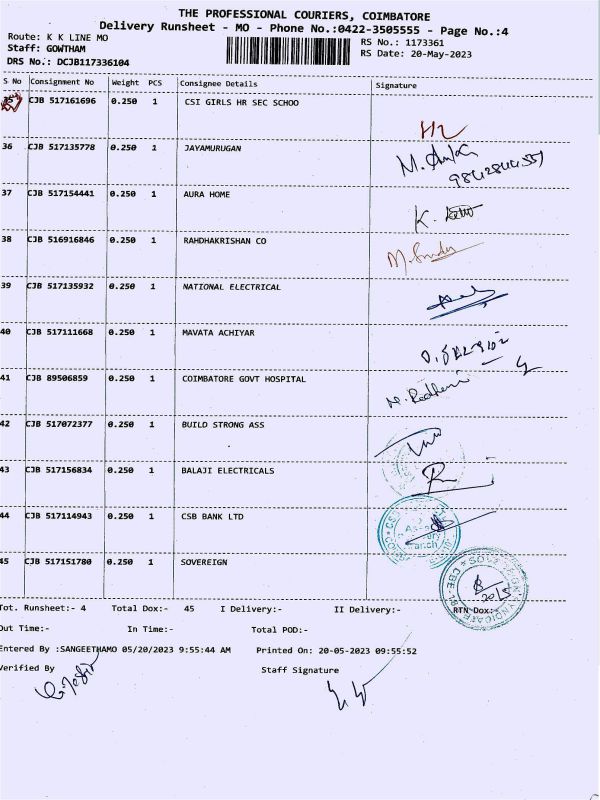 THE PROFESSIONAL COURIERS, COIMBATORE
Delivery Runsheet - MO - Phone No.:0422-3505555 - Page No.:4
Route: K K LINE MO
Staff: GOWTHAM
DRS No.: DCJB117336104
RS No.: 1173361
RS Date: 20-May-2023
S No Consignment No Weight PCS Consignee Details Signature
35 CJB 517161696 0.250 1 CSI GIRLS HR SEC SCHOO
36 CJB 517135778 0.250 1 JAYAMURUGAN
37 CJB 517154441 0.250 1 AURA HOME
38 CJB 516916846 0.250 1 RAHDHAKRISHAN CO
39 CJB 517135932 0.250 1 NATIONAL ELECTRICAL
40 CJB 517111668 0.250 1 MAVATA ACHIYAR
41 CJB 89506859 0.250 1 COIMBATORE GOVT HOSPITAL
42 CJB 517072377 0.250 1 BUILD STRONG ASS
43 CJB 517156834 0.250 1 BALAJI ELECTRICALS
44 CJB 517114943 0.250 1 CSB BANK LTD
45 CJB 517151780 0.250 1 SOVEREIGN
20/5
Tot. Runsheet:- 4 Total Dox:- 45 I Delivery:- II Delivery:- RTN Dox:-
Out Time:- In Time:- Total POD:-
Entered By :SANGEETHAMO 05/20/2023 9:55:44 AM Printed On: 20-05-2023 09:55:52
Verified By Staff Signature